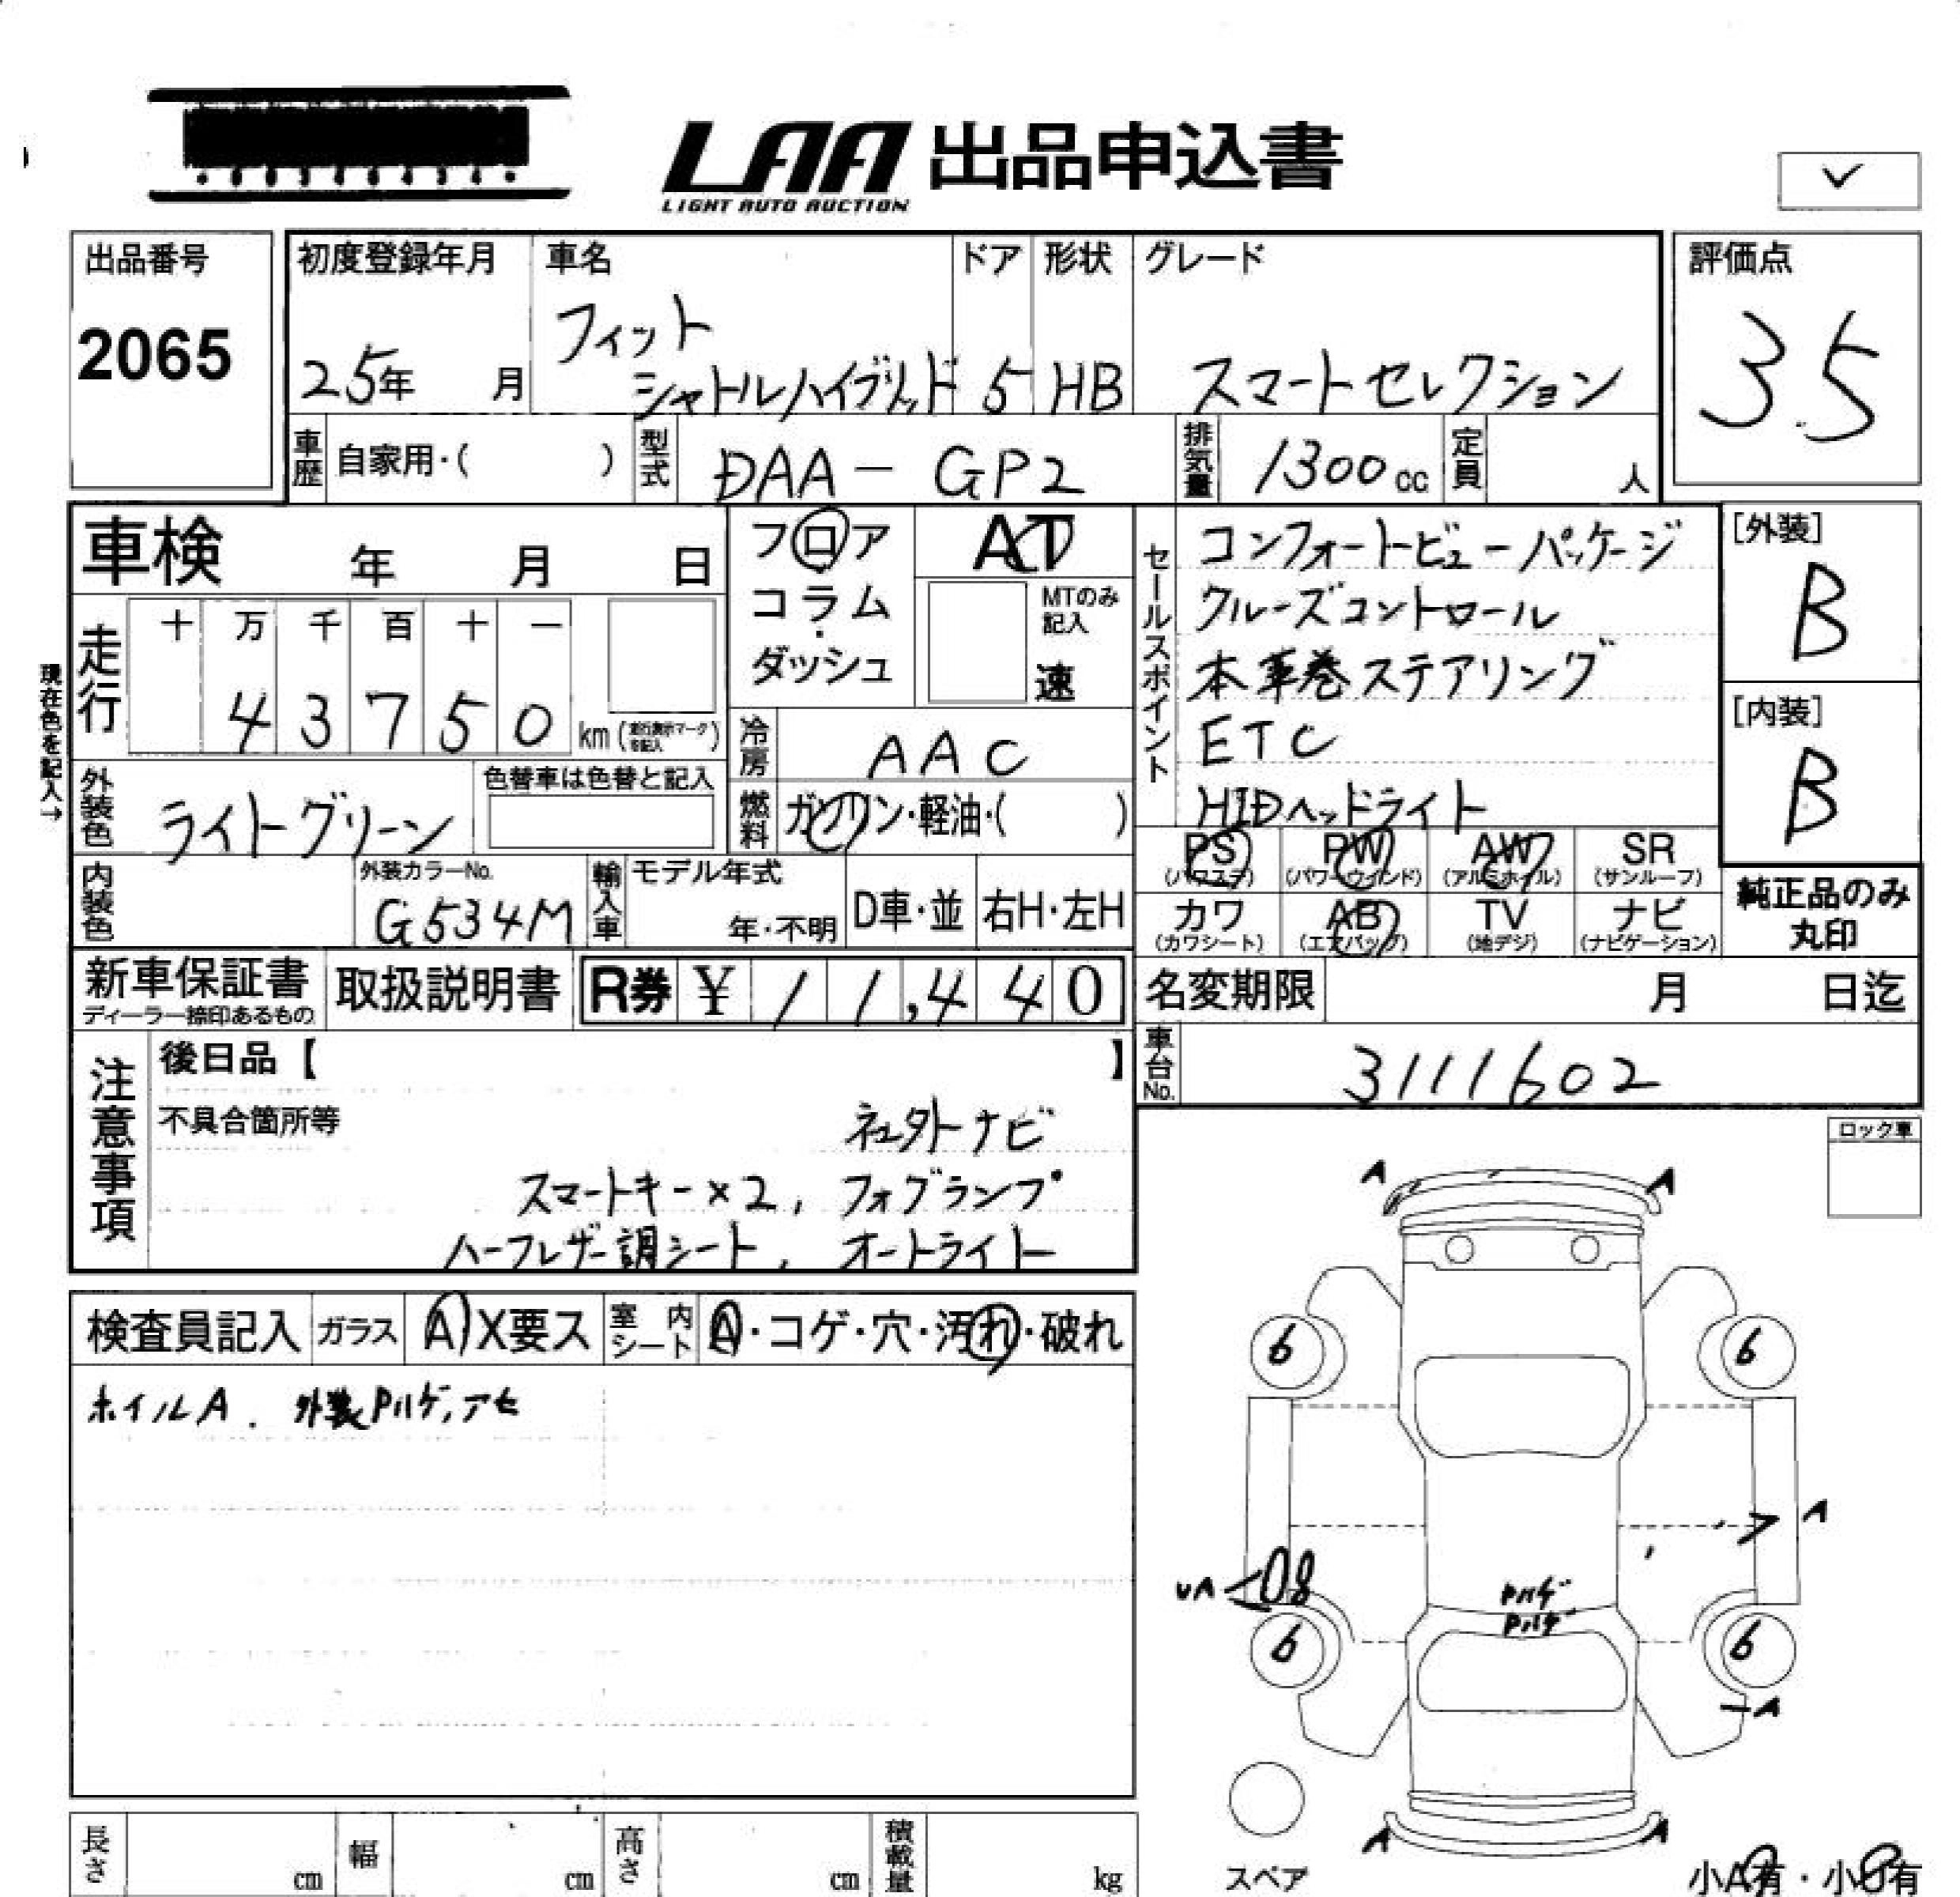 LAA 出品申込書
LIGHT AUTO AUCTION
出品番号
2065
初度登録年月
25年 月
車名
フィット
シャトルハイブリッド
ドア
5
形状
HB
グレード
スマートセレクション
評価点
3.5
車歴 自家用・( )
型式 DAA-GP2
排気量 1300cc
定員 人
車検 年 月 日
走行
十 万 千 百 十 一
4 3 7 5 0 km
現在色を記入→
フロア
・
コラム
・
ダッシュ
AT
MTのみ
記入
速
冷房 AAC
燃料 ガソリン・軽油・( )
外装色 ライトグリーン
色替車は色替と記入
内装色
外装カラーNo.
G534M
輸入車
モデル年式
年・不明
D車・並
右H・左H
セールスポイント
コンフォートビューパッケージ
クルーズコントロール
本革巻ステアリング
ETC
HIDヘッドライト
[外装]
B
[内装]
B
PS PW AW SR
(パワステ) (パワーウィンド) (アルミホイル) (サンルーフ)
カワ AB TV ナビ
(カワシート) (エアバッグ) (地デジ) (ナビゲーション)
純正品のみ
丸印
新車保証書
ディーラー捺印あるもの
取扱説明書
R券 ¥ 11,440
名変期限 月 日迄
車台No. 3111602
注意事項
後日品【 】
不具合箇所等
社外ナビ
スマートキー×2, フォグランプ
ハーフレザー調シート, オートライト
ロック車
検査員記入
ガラス A X要ス
室内シート A・コゲ・穴・汚れ・破れ
ホイルA. 外装Pハゲ,アセ
A A
6 6
A
UA 08
Pハゲ
Pハゲ
6 6
A
A A
スペア
小A有・小U有
長さ cm
幅 cm
高さ cm
積載量 kg